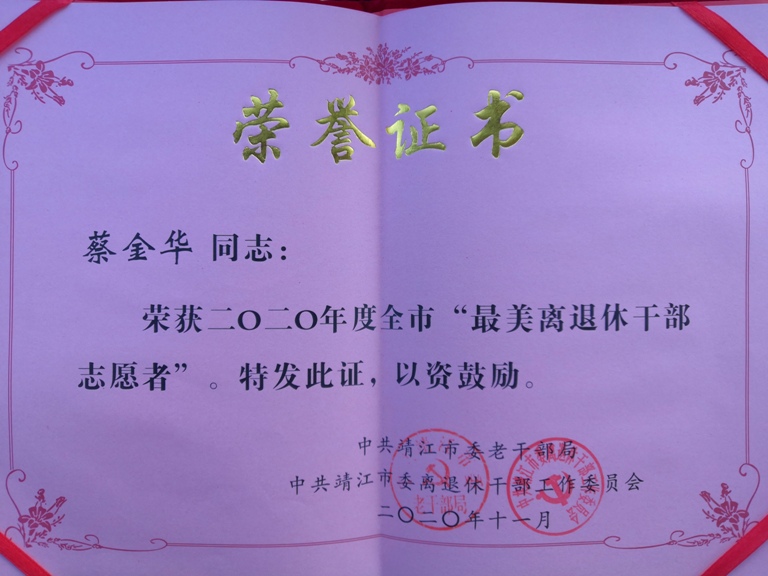 荣誉证书
蔡金华 同志：
荣获二〇二〇年度全市“最美离退休干部
志愿者”。特发此证，以资鼓励。
中共靖江市委老干部局
中共靖江市委离退休干部工作委员会
二〇二〇年十一月
老干部局